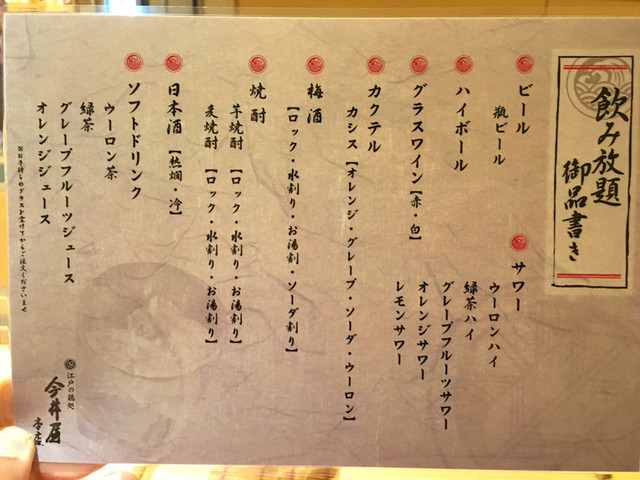 飲み放題
御品書き
ビール
瓶ビール
サワー
ウーロンハイ
緑茶ハイ
グレープフルーツサワー
オレンジサワー
レモンサワー
ハイボール
グラスワイン【赤・白】
カクテル
カシス【オレンジ・グレープ・ソーダ・ウーロン】
梅酒
【ロック・水割り・お湯割り・ソーダ割り】
焼酎
芋焼酎【ロック・水割り・お湯割り】
麦焼酎【ロック・水割り・お湯割り】
日本酒【熱燗・冷】
ソフトドリンク
ウーロン茶
緑茶
グレープフルーツジュース
オレンジジュース
※お手持ちのグラスを空けてからご注文くださいませ
江戸の鶏処
今井屋
本店